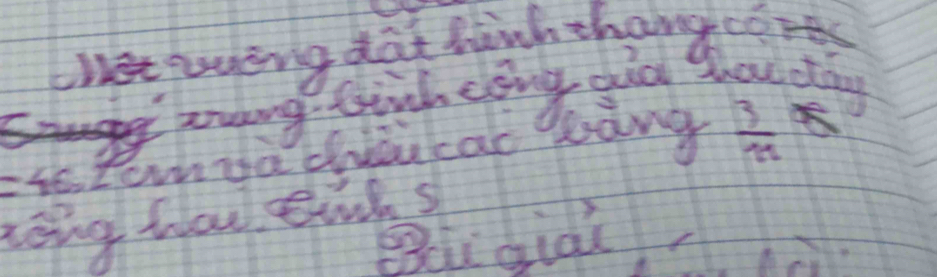 Một vuông đất hình thang có
trung bình cộng của hai đáy
= 46,2 cm và chiều cao bằng 3/11
tổng hai. tính S
Bài giải